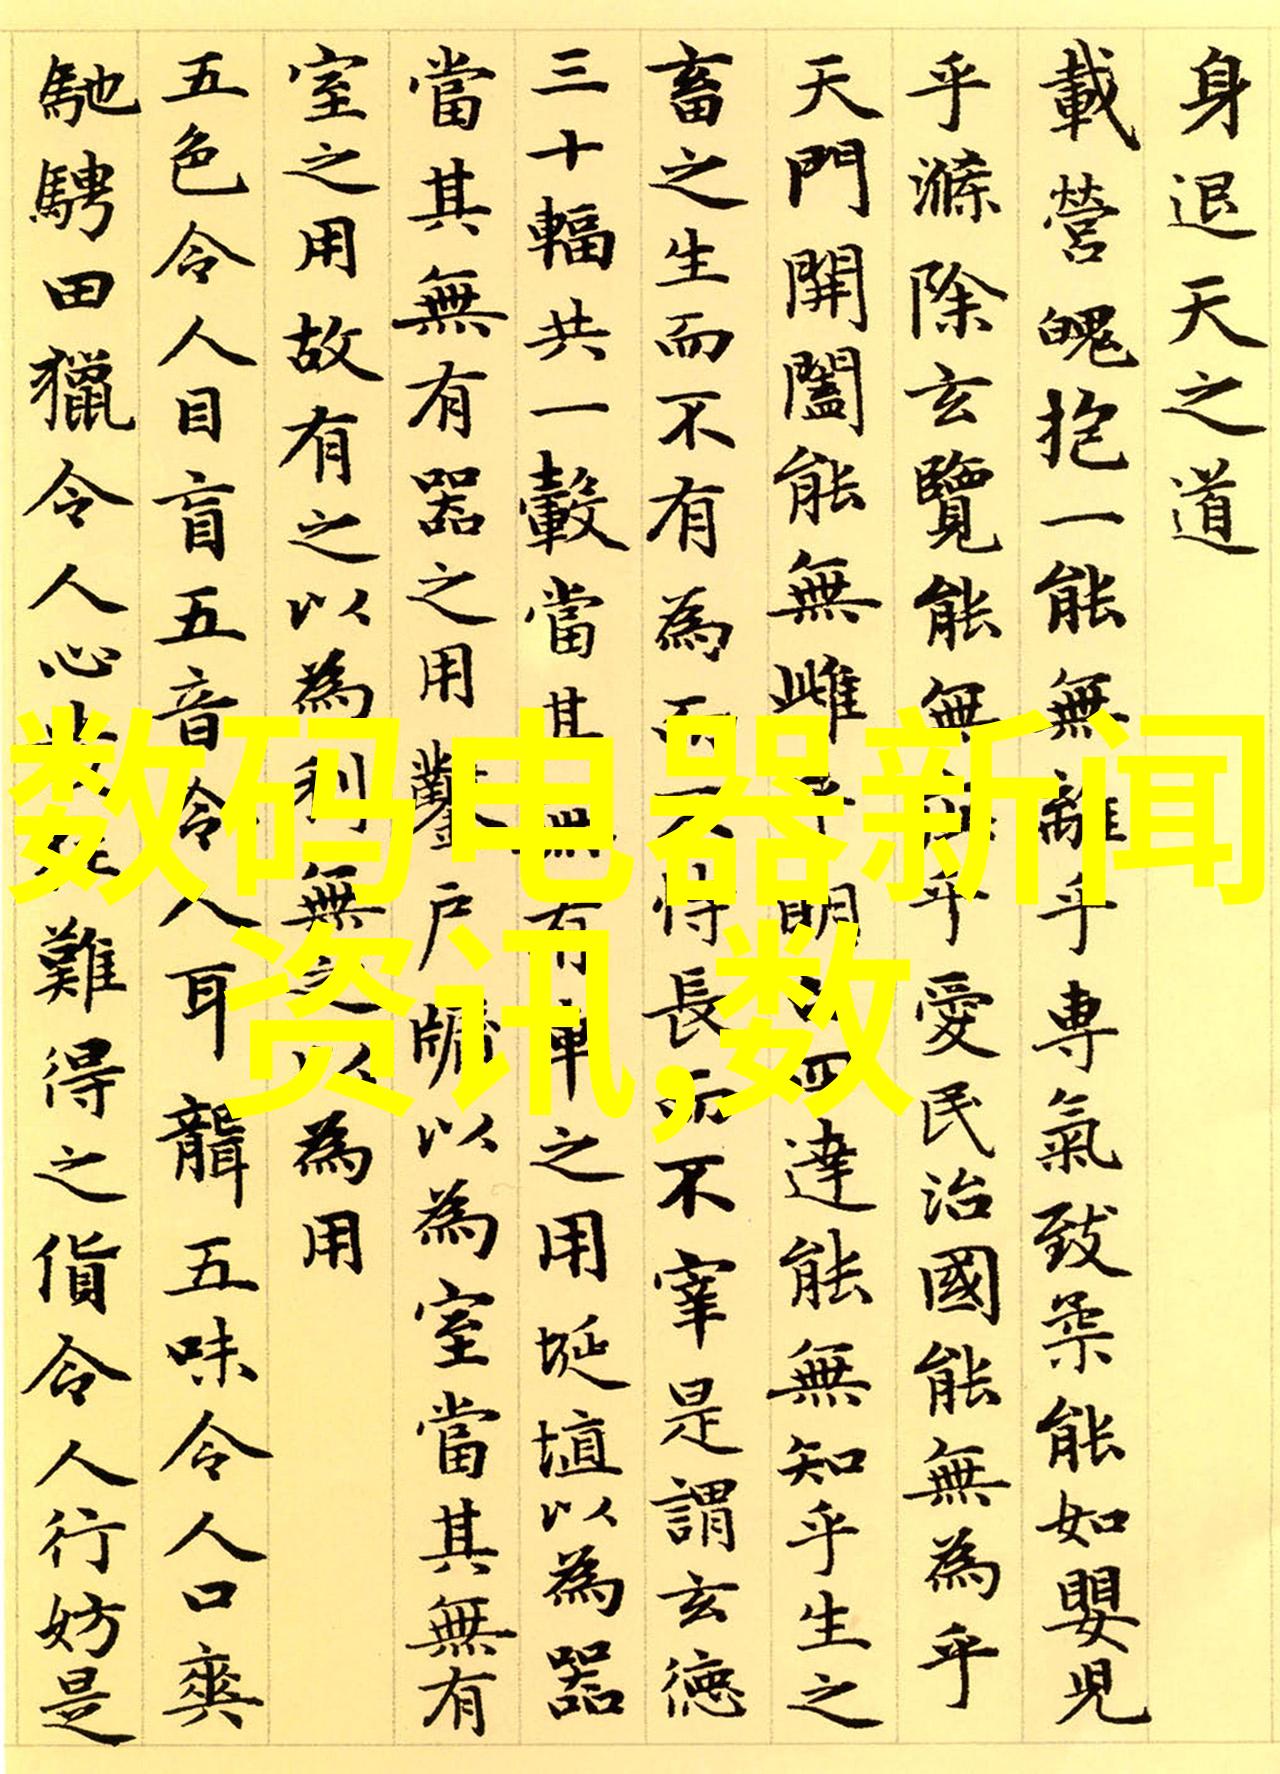 身退天之道
載營魄抱一能無離乎專氣致柔能如嬰兒
乎滌除玄覽能無乎愛民治國能無為乎
天門開闔能無雌乎明四達能無知乎生之
畜之生而不有為而不恃長而不宰是謂玄德
三十輻共一轂當其無有車之用埏埴以為器
當其無有器之用鑿戶牖以為室當其無有
室之用故有之以為利無之以為用
五色令人目盲五音令人耳聾五味令人口爽
馳騁田獵令人心難得之貨令人行妨是
数码电器新闻
资讯,数